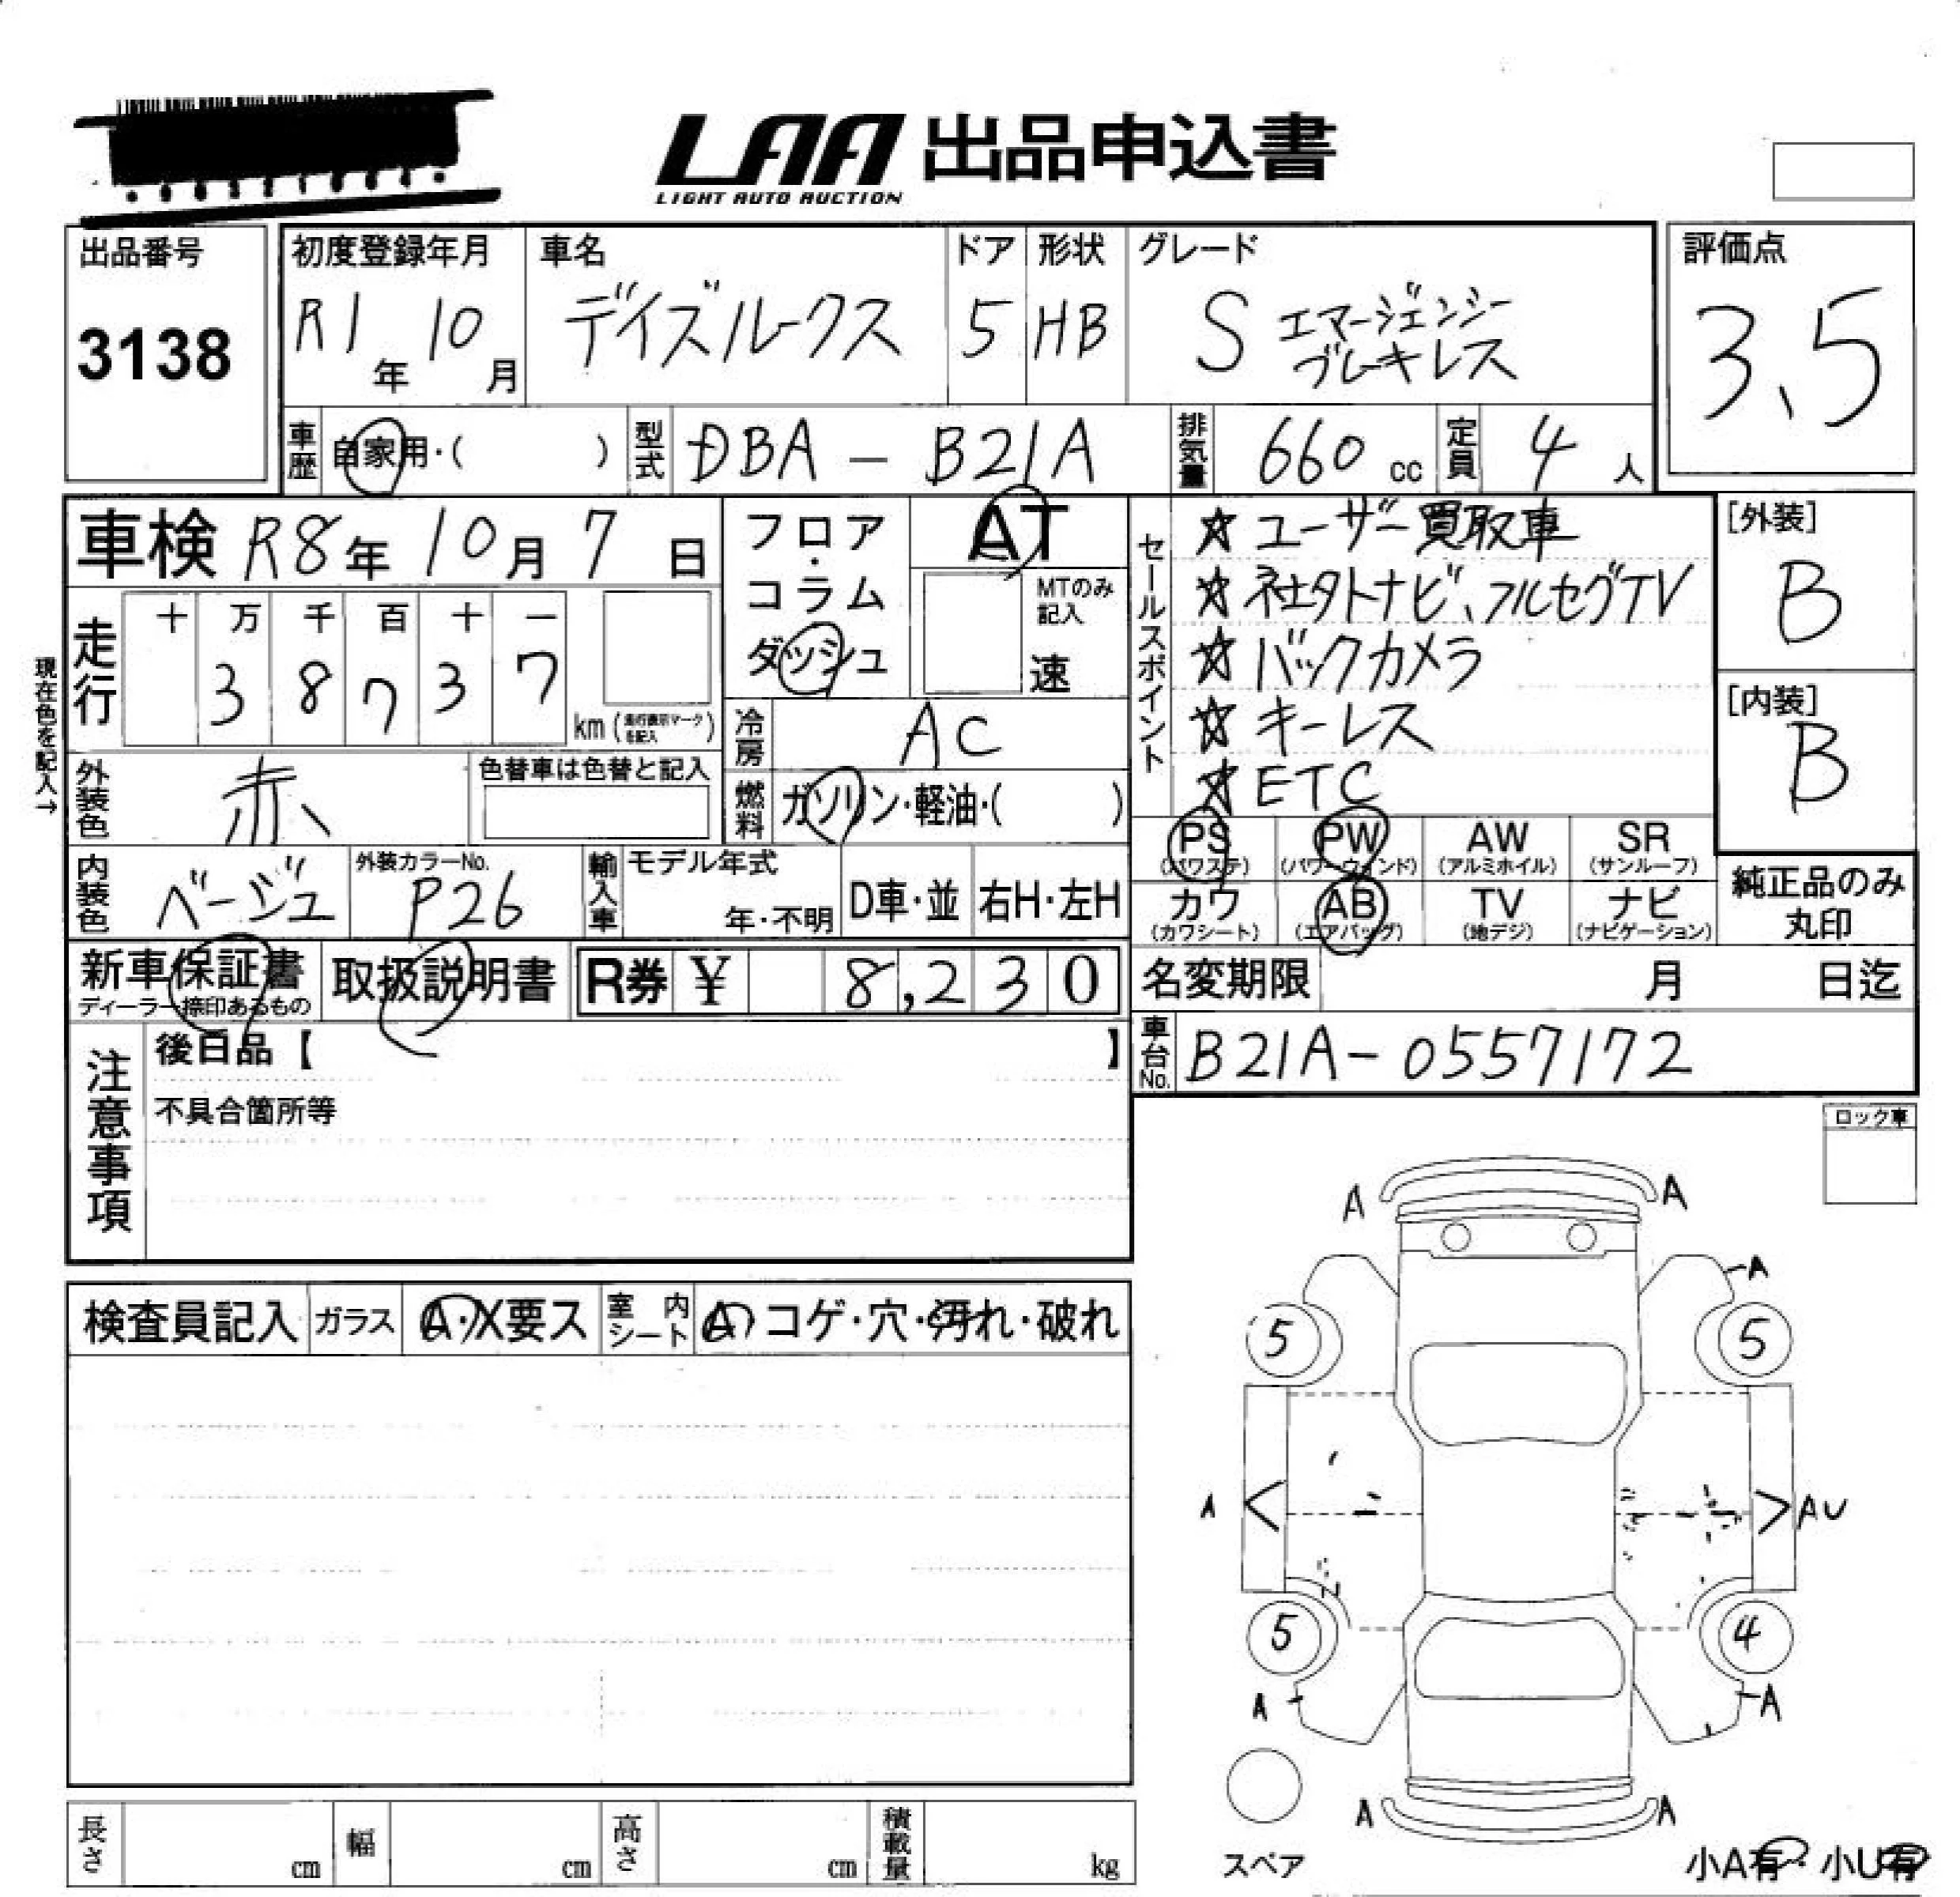 LAA 出品申込書
LIGHT AUTO AUCTION
出品番号
3138
初度登録年月
R1年 10月
車名
デイズルークス
ドア
5
形状
HB
グレード
S エマージェンシー
ブレーキレス
評価点
3.5
車歴 自家用・( )
型式 DBA - B21A
排気量 660 cc
定員 4 人
車検 R8年 10月 7日
現在色を記入→
走行
十 万 千 百 十 一
3 8 7 3 7
km(走行表示マークを記入)
フロア・コラム
ダッシュ
AT
MTのみ記入
速
冷房 AC
燃料 ガソリン・軽油・( )
セールスポイント
☆ ユーザー買取車
☆ 社外ナビ、フルセグTV
☆ バックカメラ
☆ キーレス
☆ ETC
[外装]
B
[内装]
B
外装色 赤
色替車は色替と記入
内装色 ベージュ
外装カラーNo.
P26
輸入車
モデル年式
年・不明
D車・並
右H・左H
PS
(パワステ)
PW
(パワーウィンド)
AW
(アルミホイル)
SR
(サンルーフ)
カワ
(カワシート)
AB
(エアバッグ)
TV
(地デジ)
ナビ
(ナビゲーション)
純正品のみ
丸印
新車保証書
ディーラー捺印あるもの
取扱説明書
R券 ¥ 8,230
名変期限 月 日迄
車台No. B21A-0557172
注意事項
後日品【 】
不具合箇所等
ロック車
検査員記入
ガラス A・X要ス
室内シート A コゲ・穴・汚れ・破れ
A A
A
5 5
A AU
5 4
A A
A A
スペア
小A有・小U有
長さ cm
幅 cm
高さ cm
積載量 kg